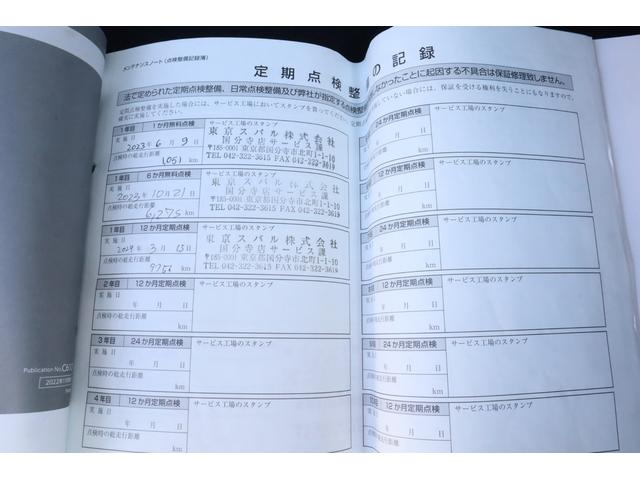 メンテナンスノート(点検整備記録簿)
定期点検整
の記録
法で定められた定期点検整備、日常点検整備及び弊社が指定する点検整
なかったことに起因する不具合は保証修理致しません。
定期点検整備を実施した場合には、サービス工場においてスタンプを貰ってください。定期
ていない場合には、保証を受ける権利を失うことにもなりますので、
確実に実施してください。
1年目 1か月無料点検
サービス工場のスタンプ
実施日
2023年6月9日
点検時の総走行距離
1051 km
東京スバル株式会社
国分寺店サービス課
〒185-0001 東京都国分寺市北町1-1-10
TEL 042-322-3615 FAX 042-322-3619
1年目 6か月無料点検
サービス工場のスタンプ
実施日
2023年10月21日
点検時の総走行距離
6,275 km
東京スバル株式会社
国分寺店サービス課
〒185-0001 東京都国分寺市北町1-1-10
TEL 042-322-3615 FAX 042-322-3619
1年目 12か月定期点検
サービス工場のスタンプ
実施日
2024年3月13日
点検時の総走行距離
9756 km
東京スバル株式会社
国分寺店サービス課
〒185-0001 東京都国分寺市北町1-1-10
TEL 042-322-3615 FAX 042-322-3619
2年目 12か月定期点検
サービス工場のスタンプ
実施日
年 月 日
点検時の総走行距離
km
3年目 24か月定期点検
サービス工場のスタンプ
実施日
年 月 日
点検時の総走行距離
km
4年目 12か月定期点検
サービス工場のスタンプ
実施日
年 月 日
点検時の総走行距離
km
24か月定期点検
サービス工場のスタンプ
年 月 日
km
12か月定期点検
サービス工場のスタンプ
年 月 日
km
24か月定期点検
サービス工場のスタンプ
年 月 日
km
12か月定期点検
サービス工場のスタンプ
年 月 日
km
24か月定期点検
サービス工場のスタンプ
年 月 日
km
12か月定期点検
サービス工場のスタンプ
年 月 日
km
Publication No.